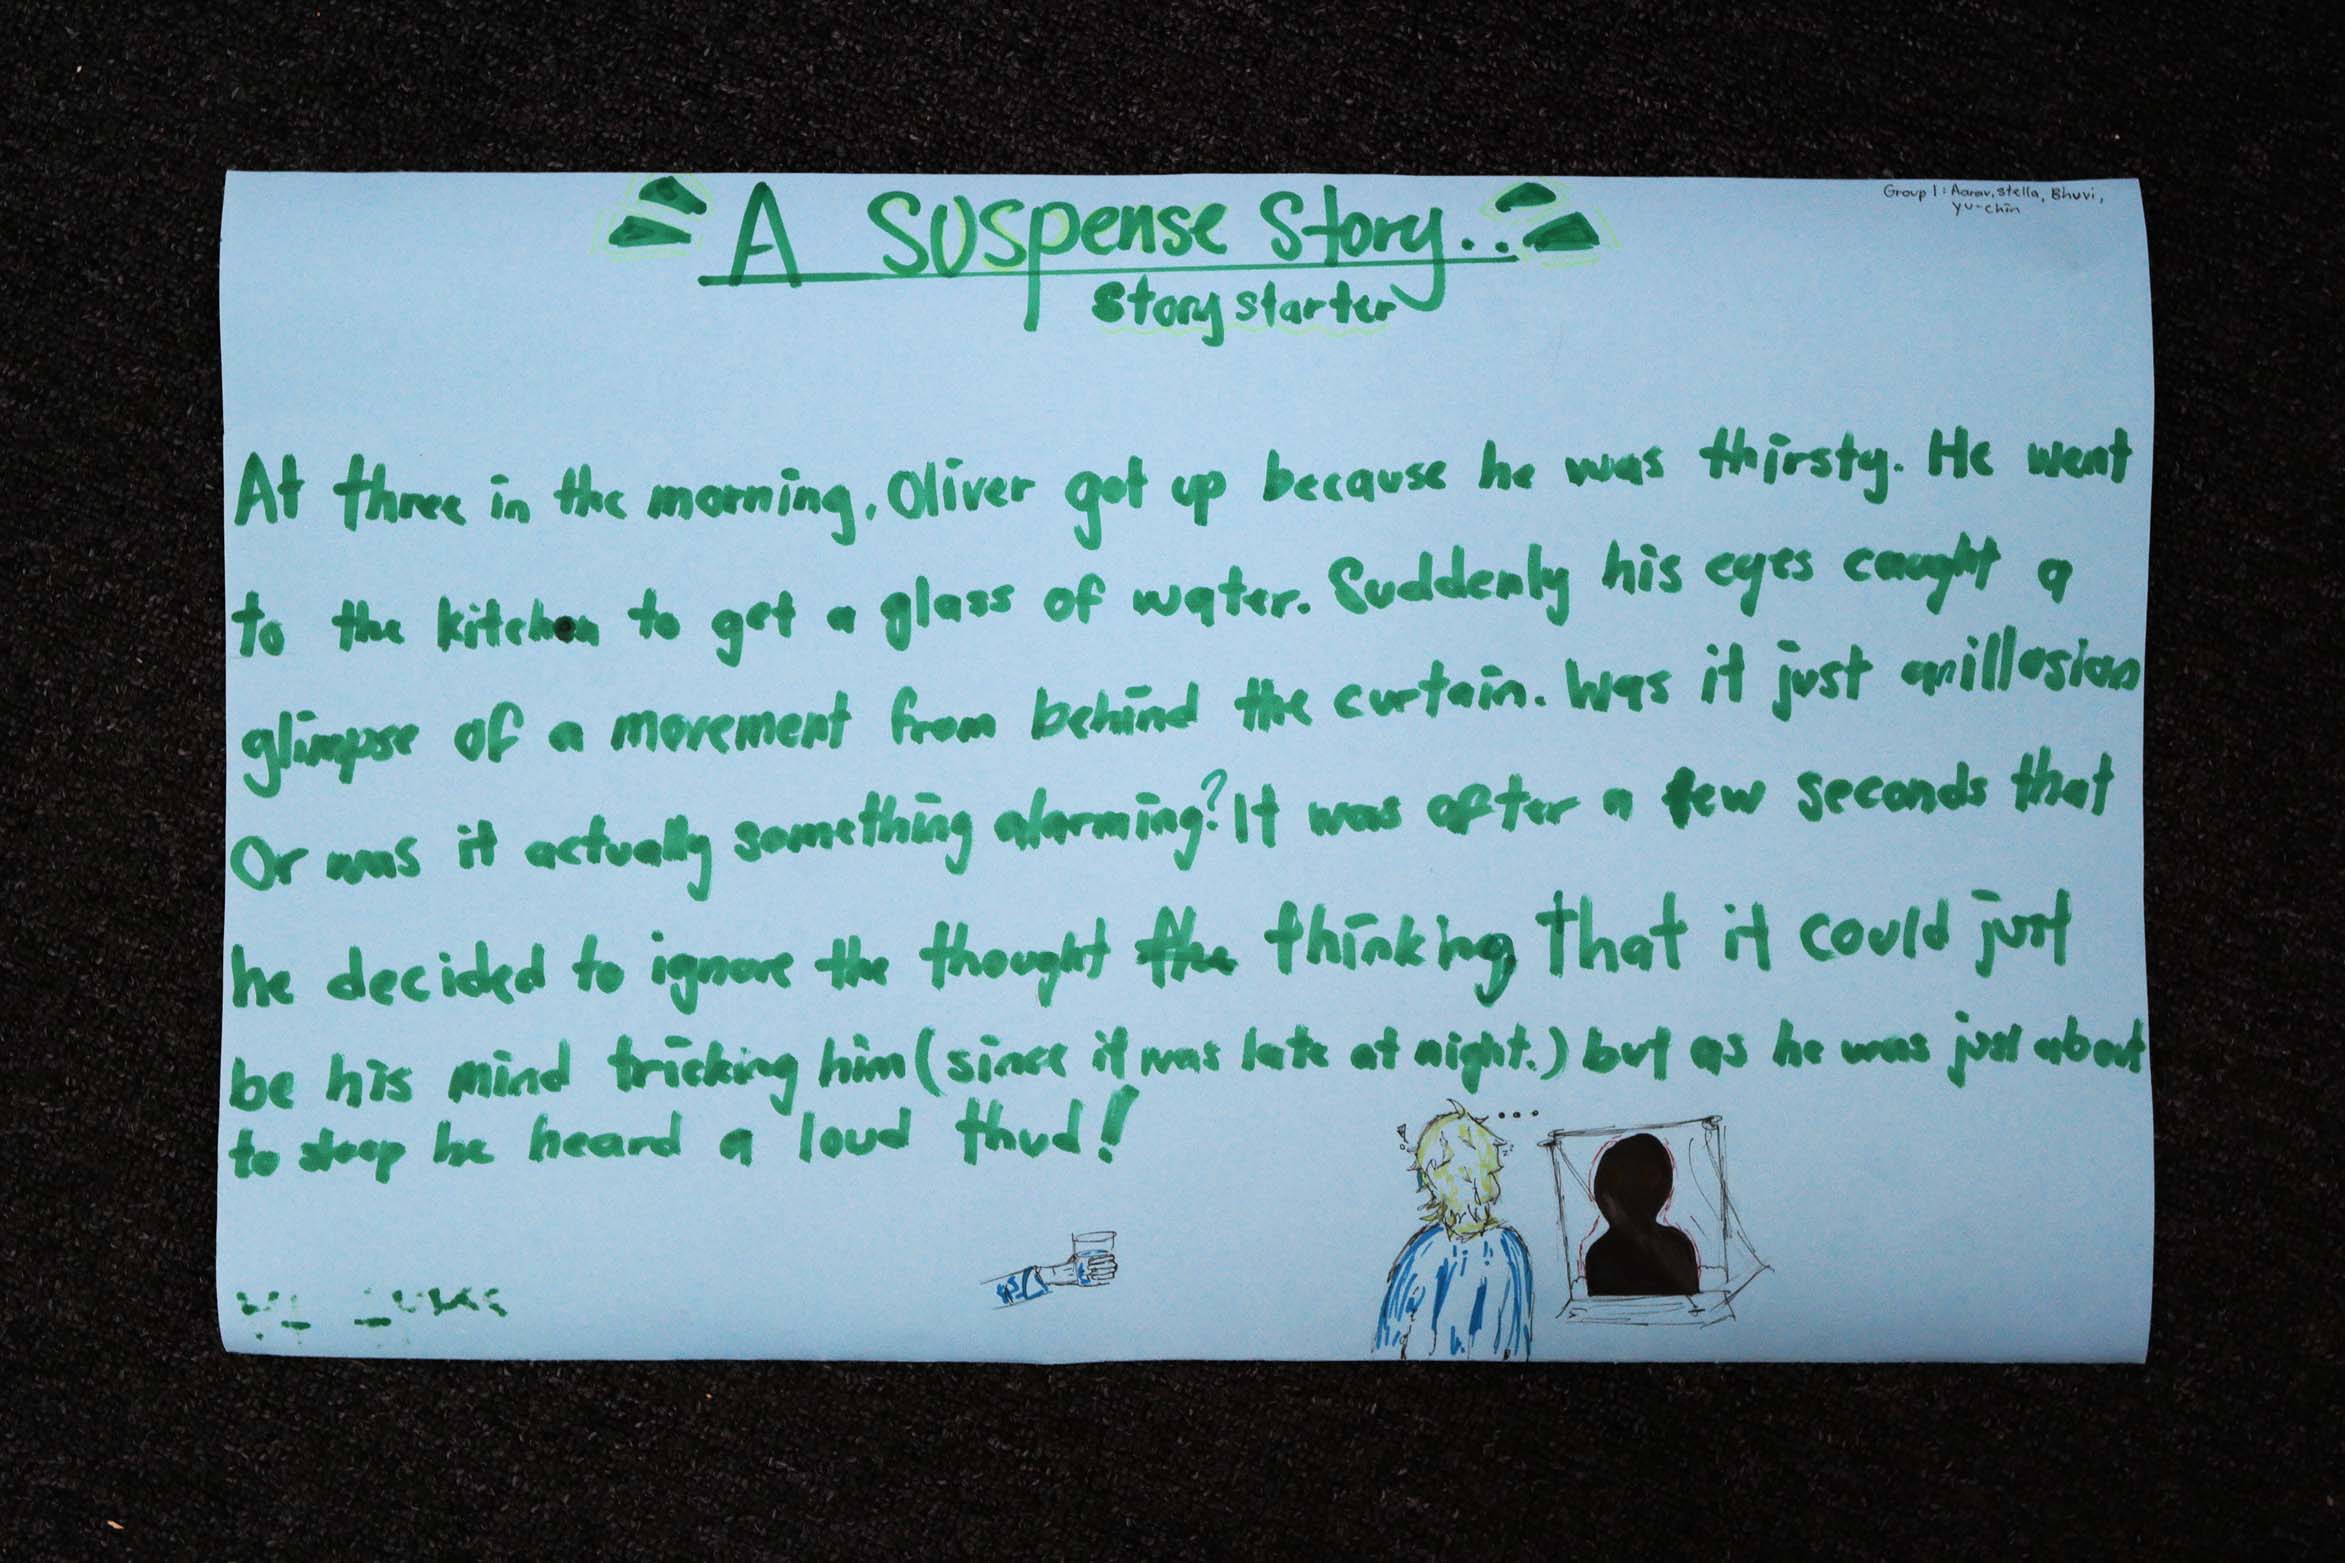 A Suspense Story...
Story starter
Group 1: Aarav, Stella, Bhuvi,
Yu-chin
At three in the morning, Oliver got up because he was thirsty. He went
to the kitchen to get a glass of water. Suddenly his eyes caught a
glimpse of a movement from behind the curtain. Was it just an illusion
Or was it actually something alarming? It was after a few seconds that
he decided to ignore the thought the thinking that it could just
be his mind tricking him (since it was late at night.) but as he was just about
to sleep he heard a loud thud!
...